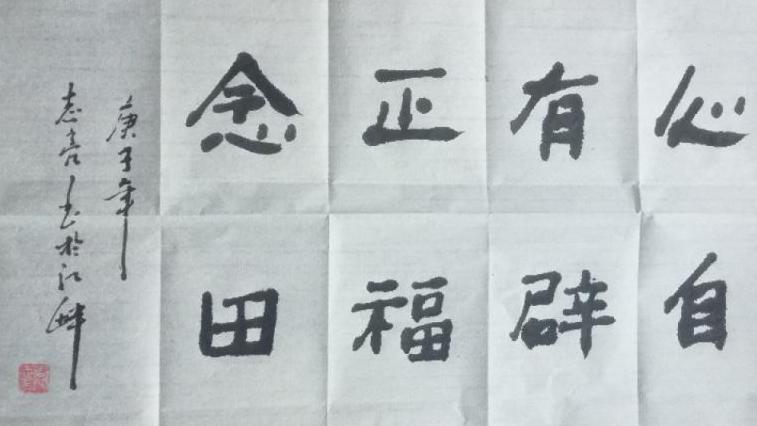 心有正念
自辟福田
庚子年
志亮书於江畔